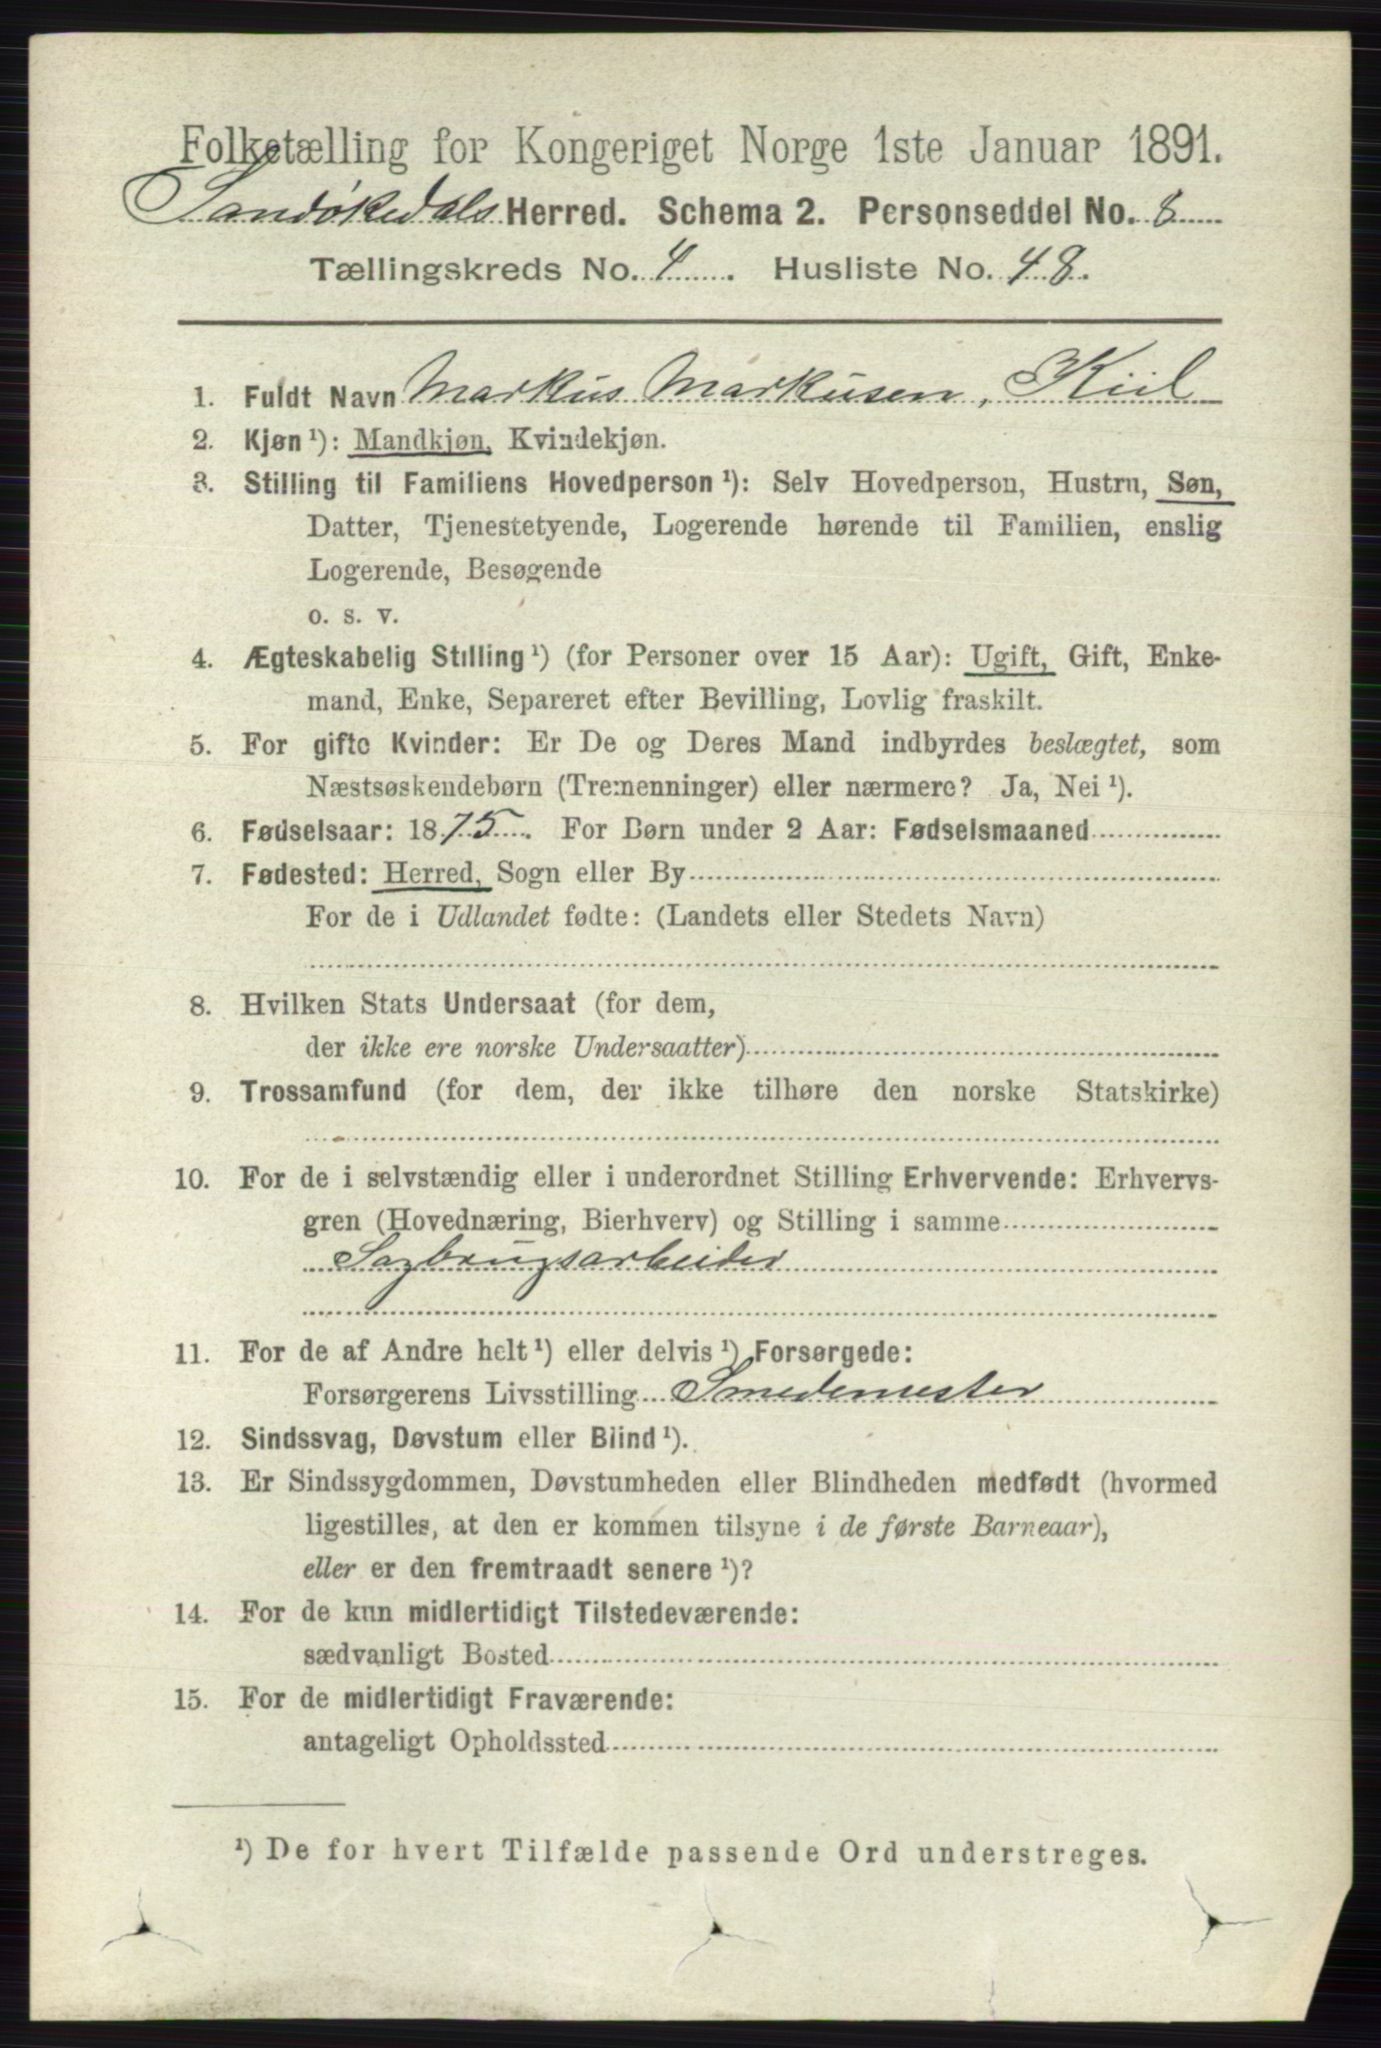 Folketælling for Kongeriget Norge 1ste Januar 1891.
Sandøkedals Herred. Schema 2. Personseddel No. 8
Tællingskreds No. 4. Husliste No. 48.
1. Fuldt Navn Markus Markusen, Kiil
2. Kjøn ¹): Mandkjøn, Kvindekjøn.
3. Stilling til Familiens Hovedperson ¹): Selv Hovedperson, Hustru, Søn,
Datter, Tjenestetyende, Logerende hørende til Familien, enslig
Logerende, Besøgende
o. s. v.
4. Ægteskabelig Stilling ¹) (for Personer over 15 Aar): Ugift, Gift, Enke-
mand, Enke, Separeret efter Bevilling, Lovlig fraskilt.
5. For gifte Kvinder: Er De og Deres Mand indbyrdes beslægtet, som
Næstsøskendebørn (Tremenninger) eller nærmere? Ja, Nei ¹).
6. Fødselsaar: 1875. For Børn under 2 Aar: Fødselsmaaned
7. Fødested: Herred, Sogn eller By
For de i Udlandet fødte: (Landets eller Stedets Navn)
8. Hvilken Stats Undersaat (for dem,
der ikke ere norske Undersaatter)
9. Trossamfund (for dem, der ikke tilhøre den norske Statskirke)
10. For de i selvstændig eller i underordnet Stilling Erhvervende: Erhvervs-
gren (Hovednæring, Bierhverv) og Stilling i samme
Sagbrugsarbeider
11. For de af Andre helt ¹) eller delvis ¹) Forsørgede:
Forsørgerens Livsstilling Smedemester
12. Sindssvag, Døvstum eller Blind ¹).
13. Er Sindssygdommen, Døvstumheden eller Blindheden medfødt (hvormed
ligestilles, at den er kommen tilsyne i de første Barneaar),
eller er den fremtraadt senere ¹)?
14. For de kun midlertidigt Tilstedeværende:
sædvanligt Bosted
15. For de midlertidigt Fraværende:
antageligt Opholdssted
¹) De for hvert Tilfælde passende Ord understreges.